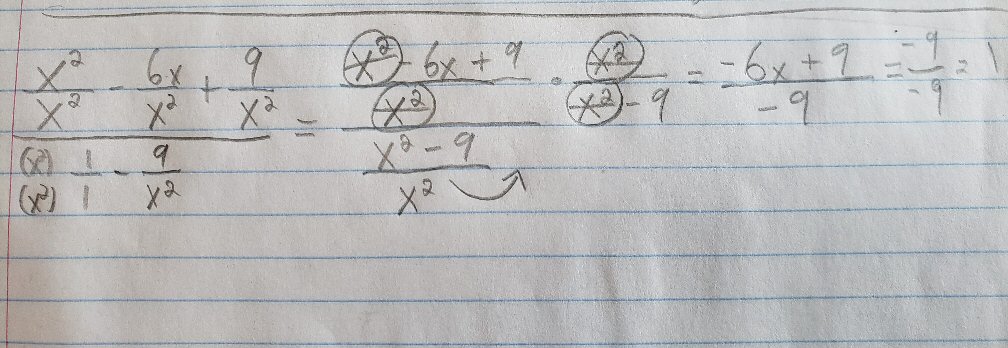 x²/x² - 6x/x² + 9/x² / (x²) 1/(x²) 1 - 9/x² = x² - 6x + 9 / x² / x² - 9 / x² · x²/x² - 9 = -6x + 9/-9 = -9/-9 = 1